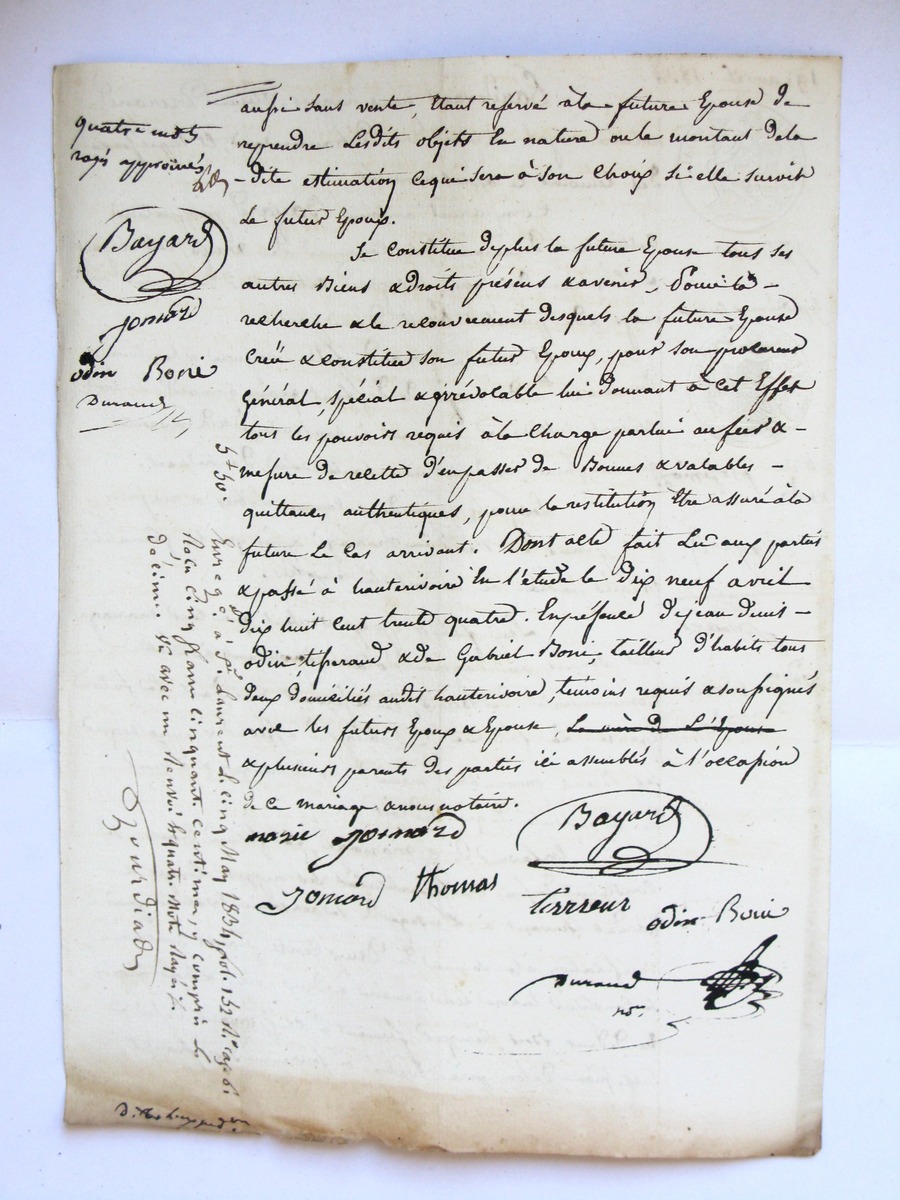 aussi sans vente, étant reservé à la future Epouse de
reprendre lesdits objets En nature ou le montant de la
-dite estimation ce qui sera à son Choix si elle survit
Le futur Epoux.
Se Constitue deplus la future Epouse tous ses
autres Biens & droits présens & avenir,
recherche & le recouvrement desquels la future Epouse
Créé & constitue son futur Epoux, pour son procureur
Général, spécial & irrévocable lui donnant à cet Effet
tous les pouvoirs requis à la Charge par lui au fur & -
mesure de recette d'en passer de Bonnes & valables -
quittances authentiques, pour la restitution Etre assuré à la
future Le Cas arrivant. Dont acte fait Lu aux parties
& passé à hauterivoire En l'étude le Dix neuf avril
Dix huit Cent trente quatre. En présence de jean denis -
odin, tisserand & de Gabriel Boni, tailleur d'habits tous
deux domiciliés audit hauterivoire, temoins requis & soussignés
avec les futurs Epoux & Epouse, La mère de L'Epouse
& plusieurs parents des parties ici assemblés à l'occasion
de ce mariage & nous notaire.
marie Jomard
Bayard
Jomard Thomas
odin Boni
Durand
nre.
quatre mots
rayés approuvés
Bayard
jomard
odin Boni
Durand
5f 50c
Enregé. à St. Laurent le cinq May 1834, fol. 152 Ro. case 6.
Reçu cinq francs cinquante centimes, y compris le
décime. avec un Renvoi & quatre Mots Rayés.